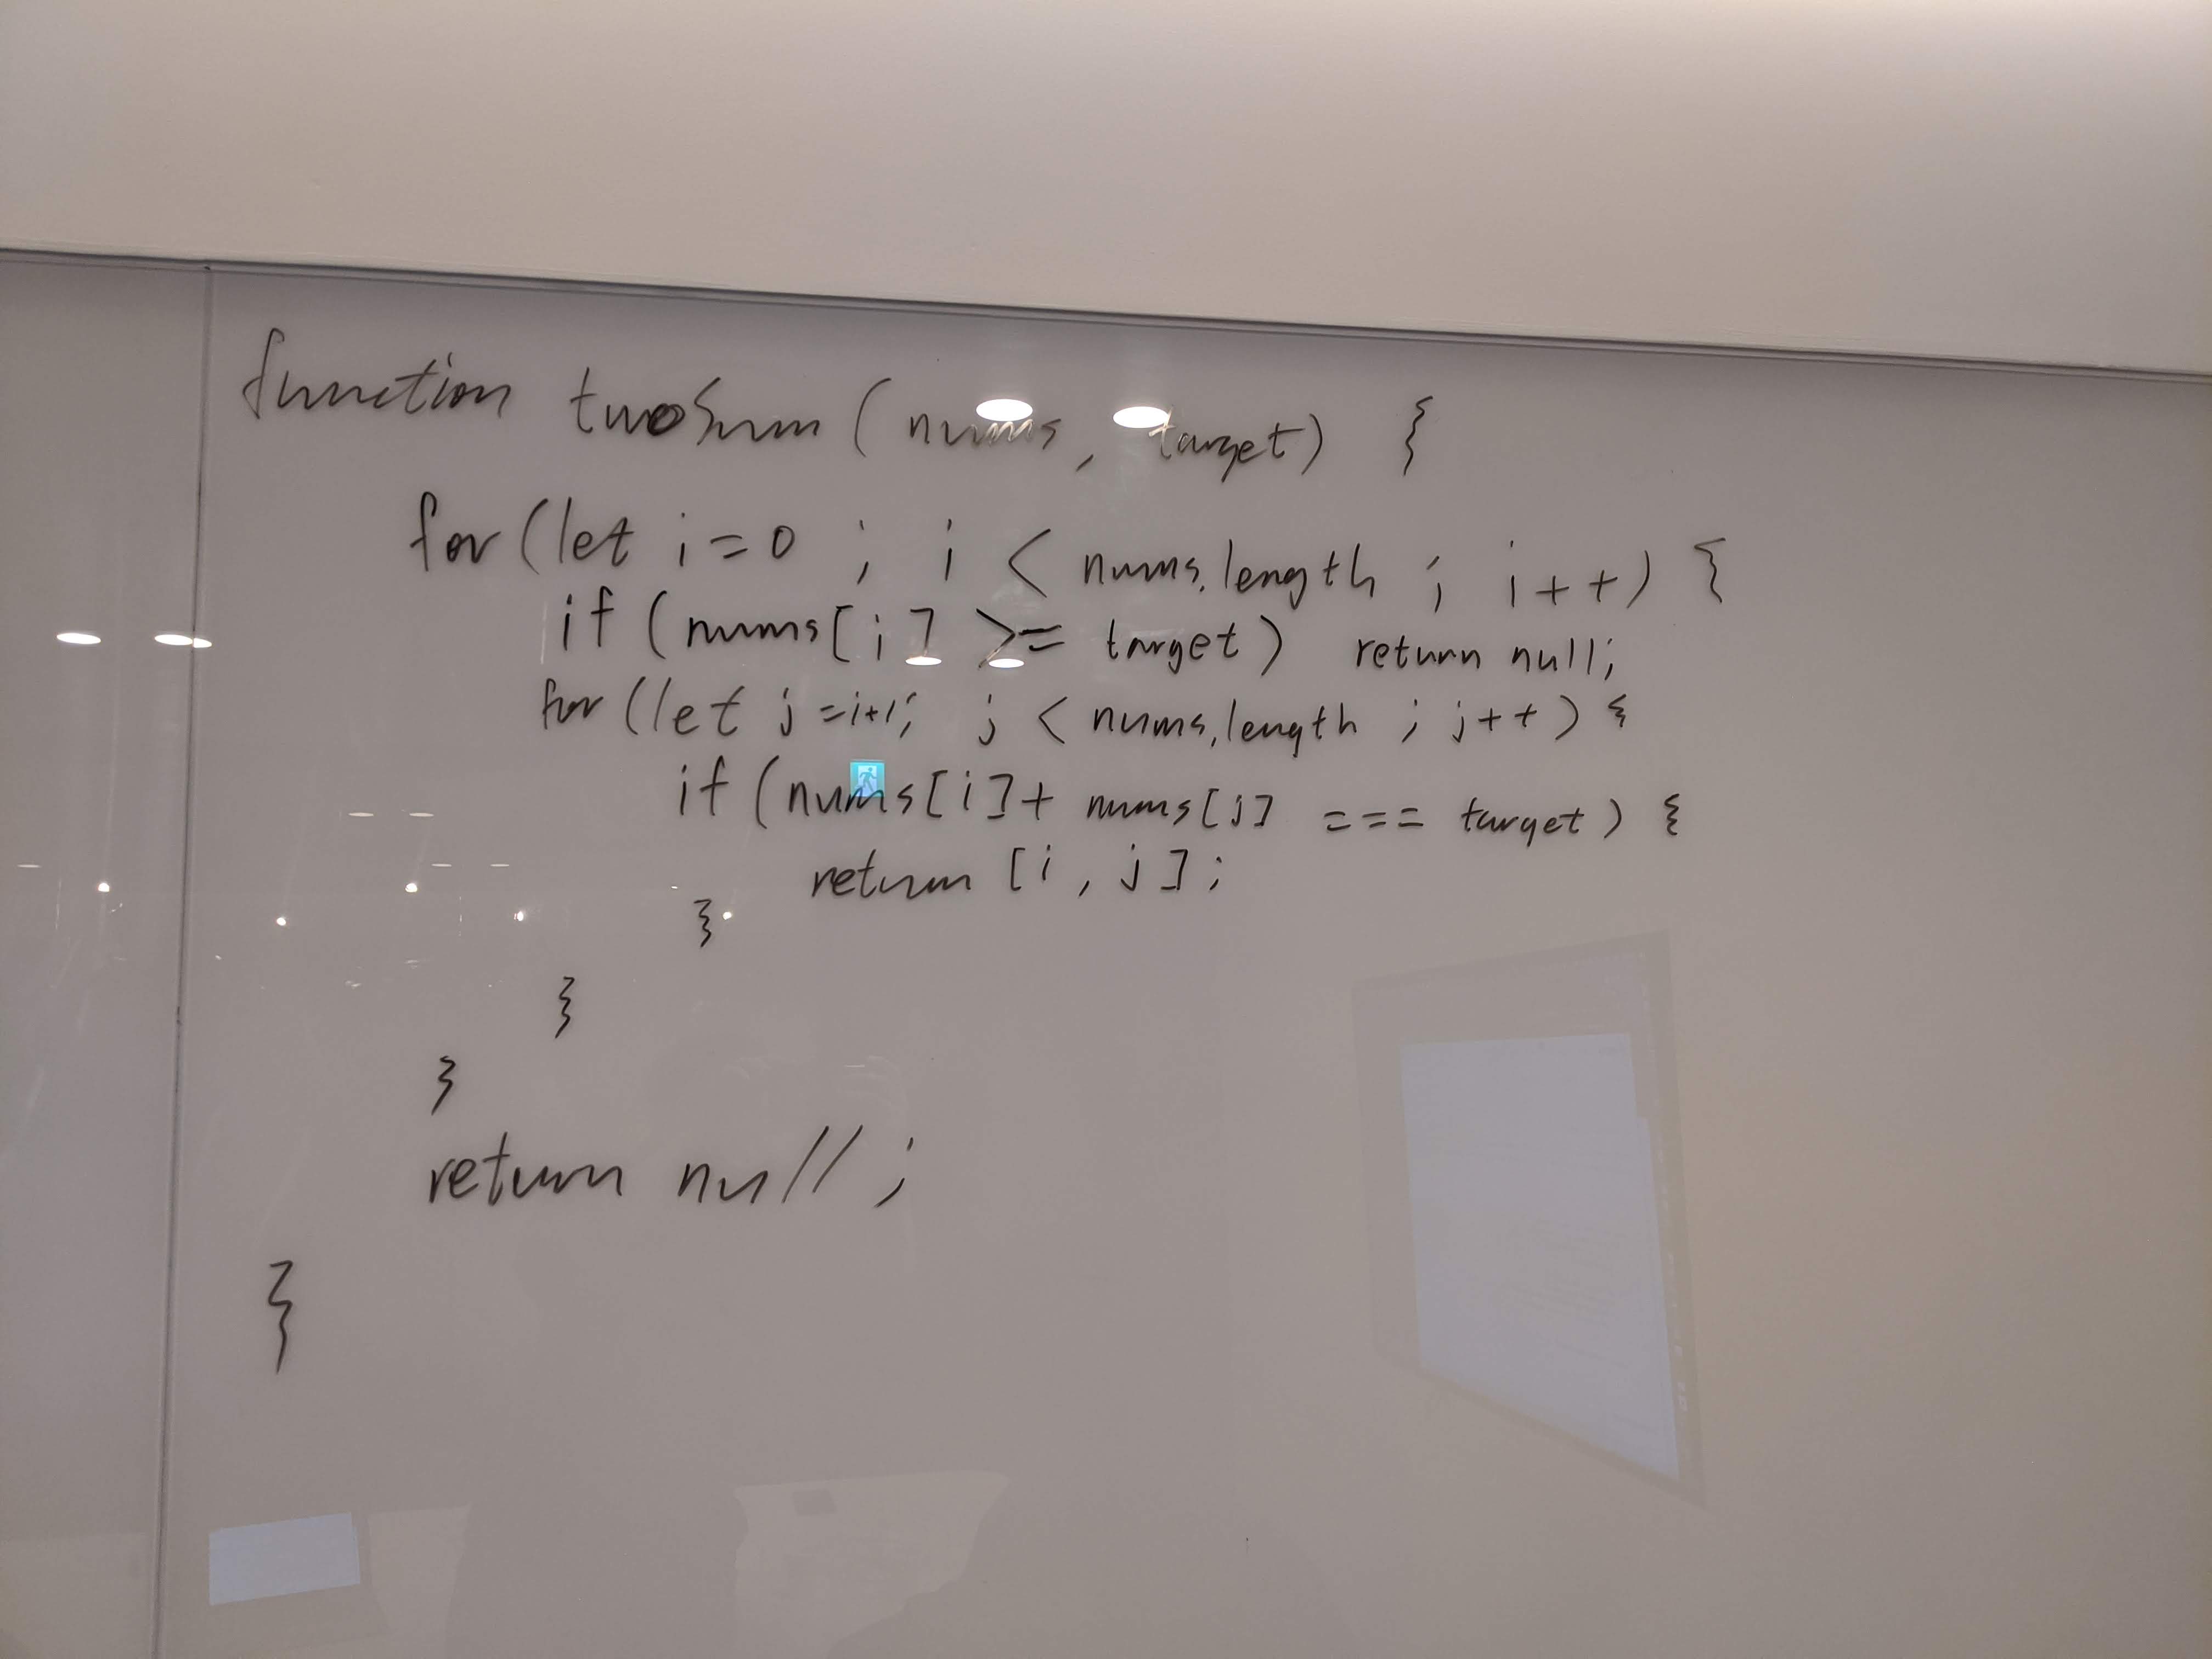 function twoSum ( nums, target) {
for (let i = 0 ; i < nums.length ; i++) {
if ( nums[i] >= target) return null;
for (let j = i+1; j < nums.length ; j++) {
if (nums[i] + nums[j] === target) {
return [i, j];
}
}
}
return null ;
}